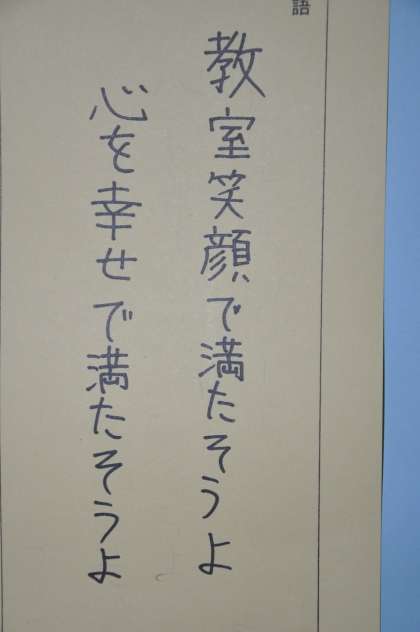 語
教室笑顔で満たそうよ
心を幸せで満たそうよ